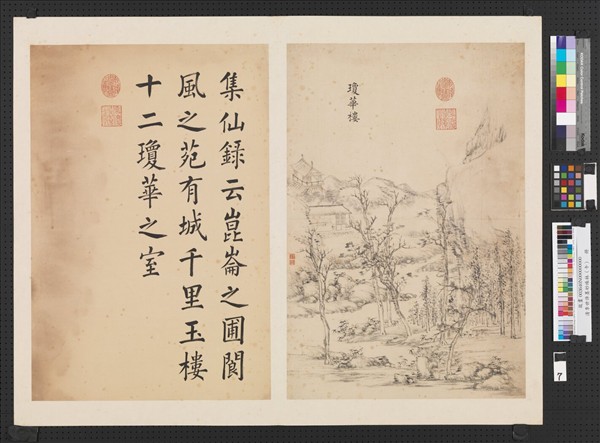 集仙録云崑崙之圃閬
風之苑有城千里玉樓
十二瓊華之室
瓊華樓
7